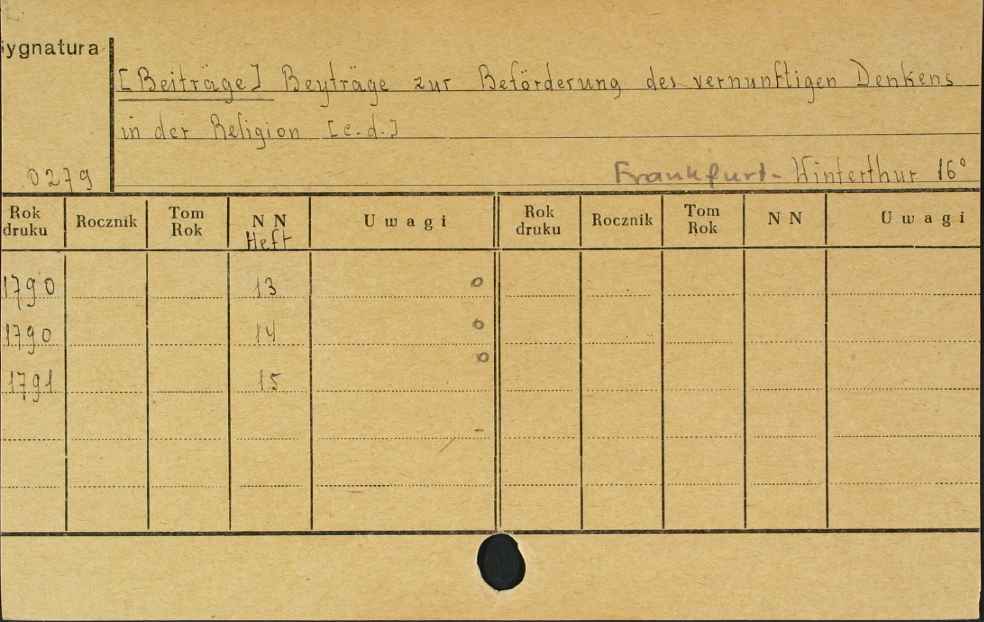 Sygnatura
[Beiträge] Beyträge zur Beförderung des vernunftigen Denkens
in der Religion [e.d.]
0279 Frankfurt- Winterthur 16°
Rok druku Rocznik Tom Rok NN Heft Uwagi Rok druku Rocznik Tom Rok NN Uwagi
1790 13 o
1790 14 o
1791 15 o